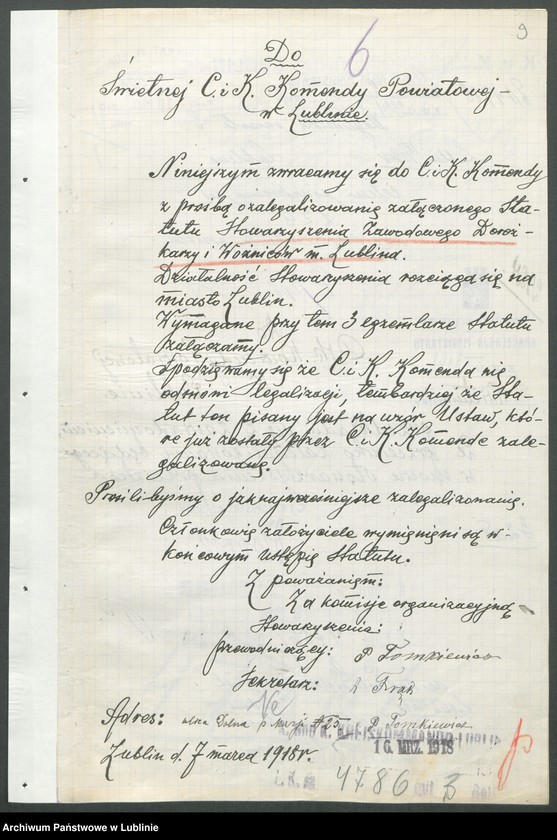 9
6
Do
Świetnej C. i K. Komendy Powiatowej –
w Lublinie.
Niniejszym zwracamy się do C. i K. Komendy
z prośbą o zalegalizowanie załączonego Sta-
tutu Stowarzyszenia Zawodowego Doroż-
karzy i Woźniców m. Lublina.
Działalność Stowarzyszenia rozciąga się na
miasto Lublin.
Wymagane przy tem 3 egzemlarze Statutu
załączamy.
Spodziewamy się że C. i K. Komenda nie
odmówi legalizacji, tembardziej że Sta-
tut ten pisany jest na wzór Ustaw, któ-
re już zostały przez C. i K. Komendę zale-
galizowane.
Prosili-byśmy o jaknajwcześniejsze zalegalizowanie.
Członkowie założyciele wymienieni są w-
końcowym ustępie Statutu.
Z poważaniem:
Za komisję organizacyjną
Stowarzyszenia:
przewodniczący: P Tomkiewicz
Sekretarz:
Adres: ulica Dolna P. Marji № 25 P. Tomkiewicz
16. MRZ. 1918
Lublin d. 7 marca 1918 r.
4786
Archiwum Państwowe w Lublinie